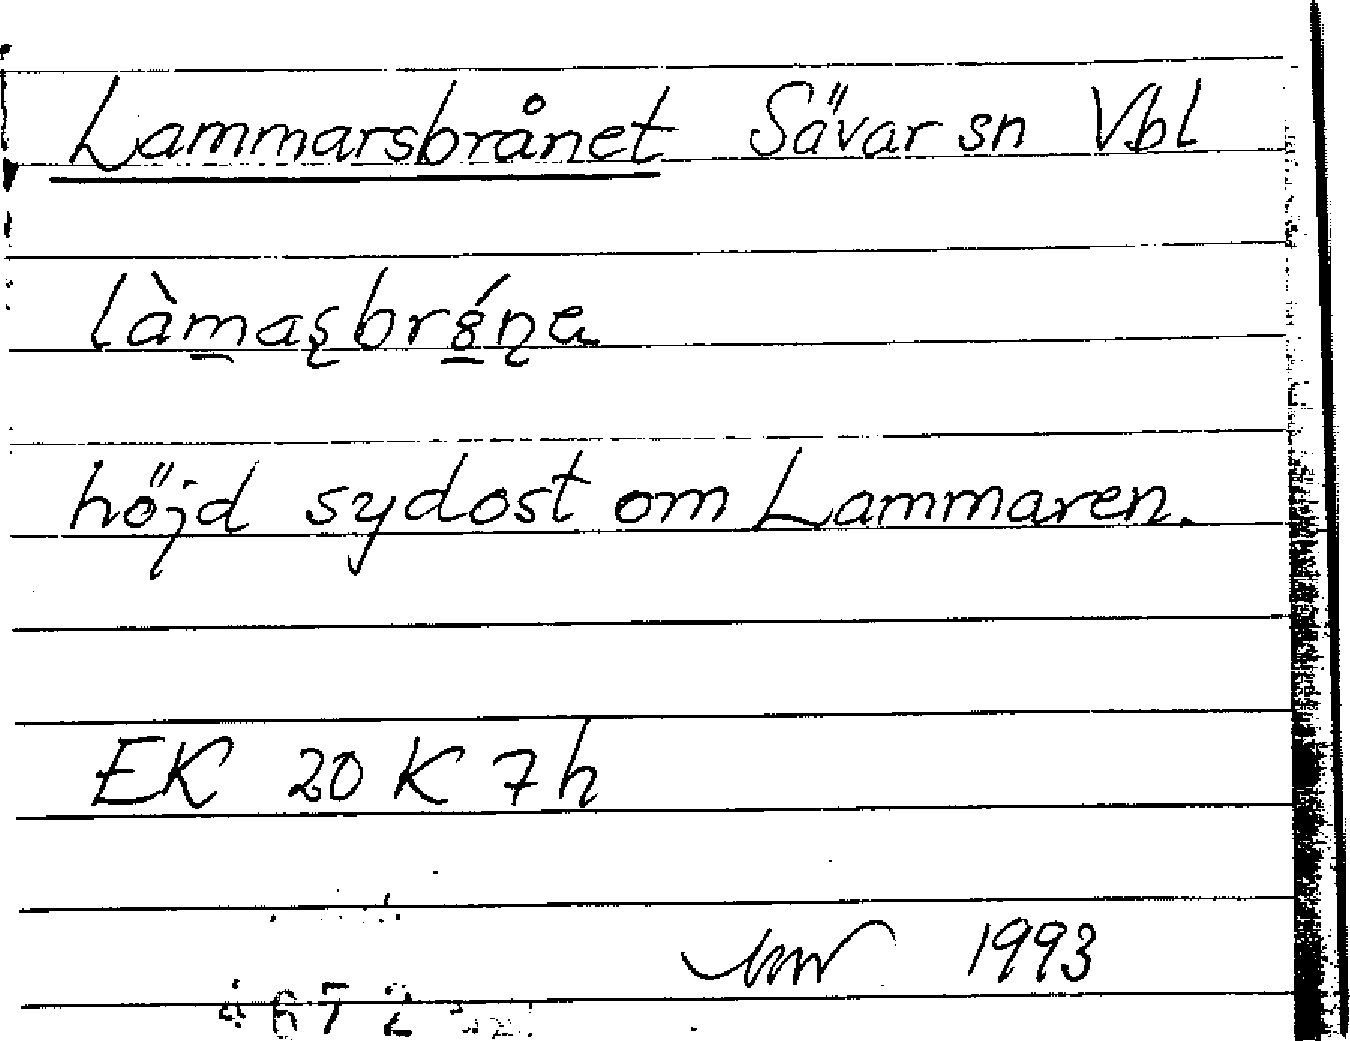 Lammarsbrånet Sävar sn Vbl
làmaʂbrǿɳa
höjd sydost om Lammaren.
EK 20 K 7h
1993